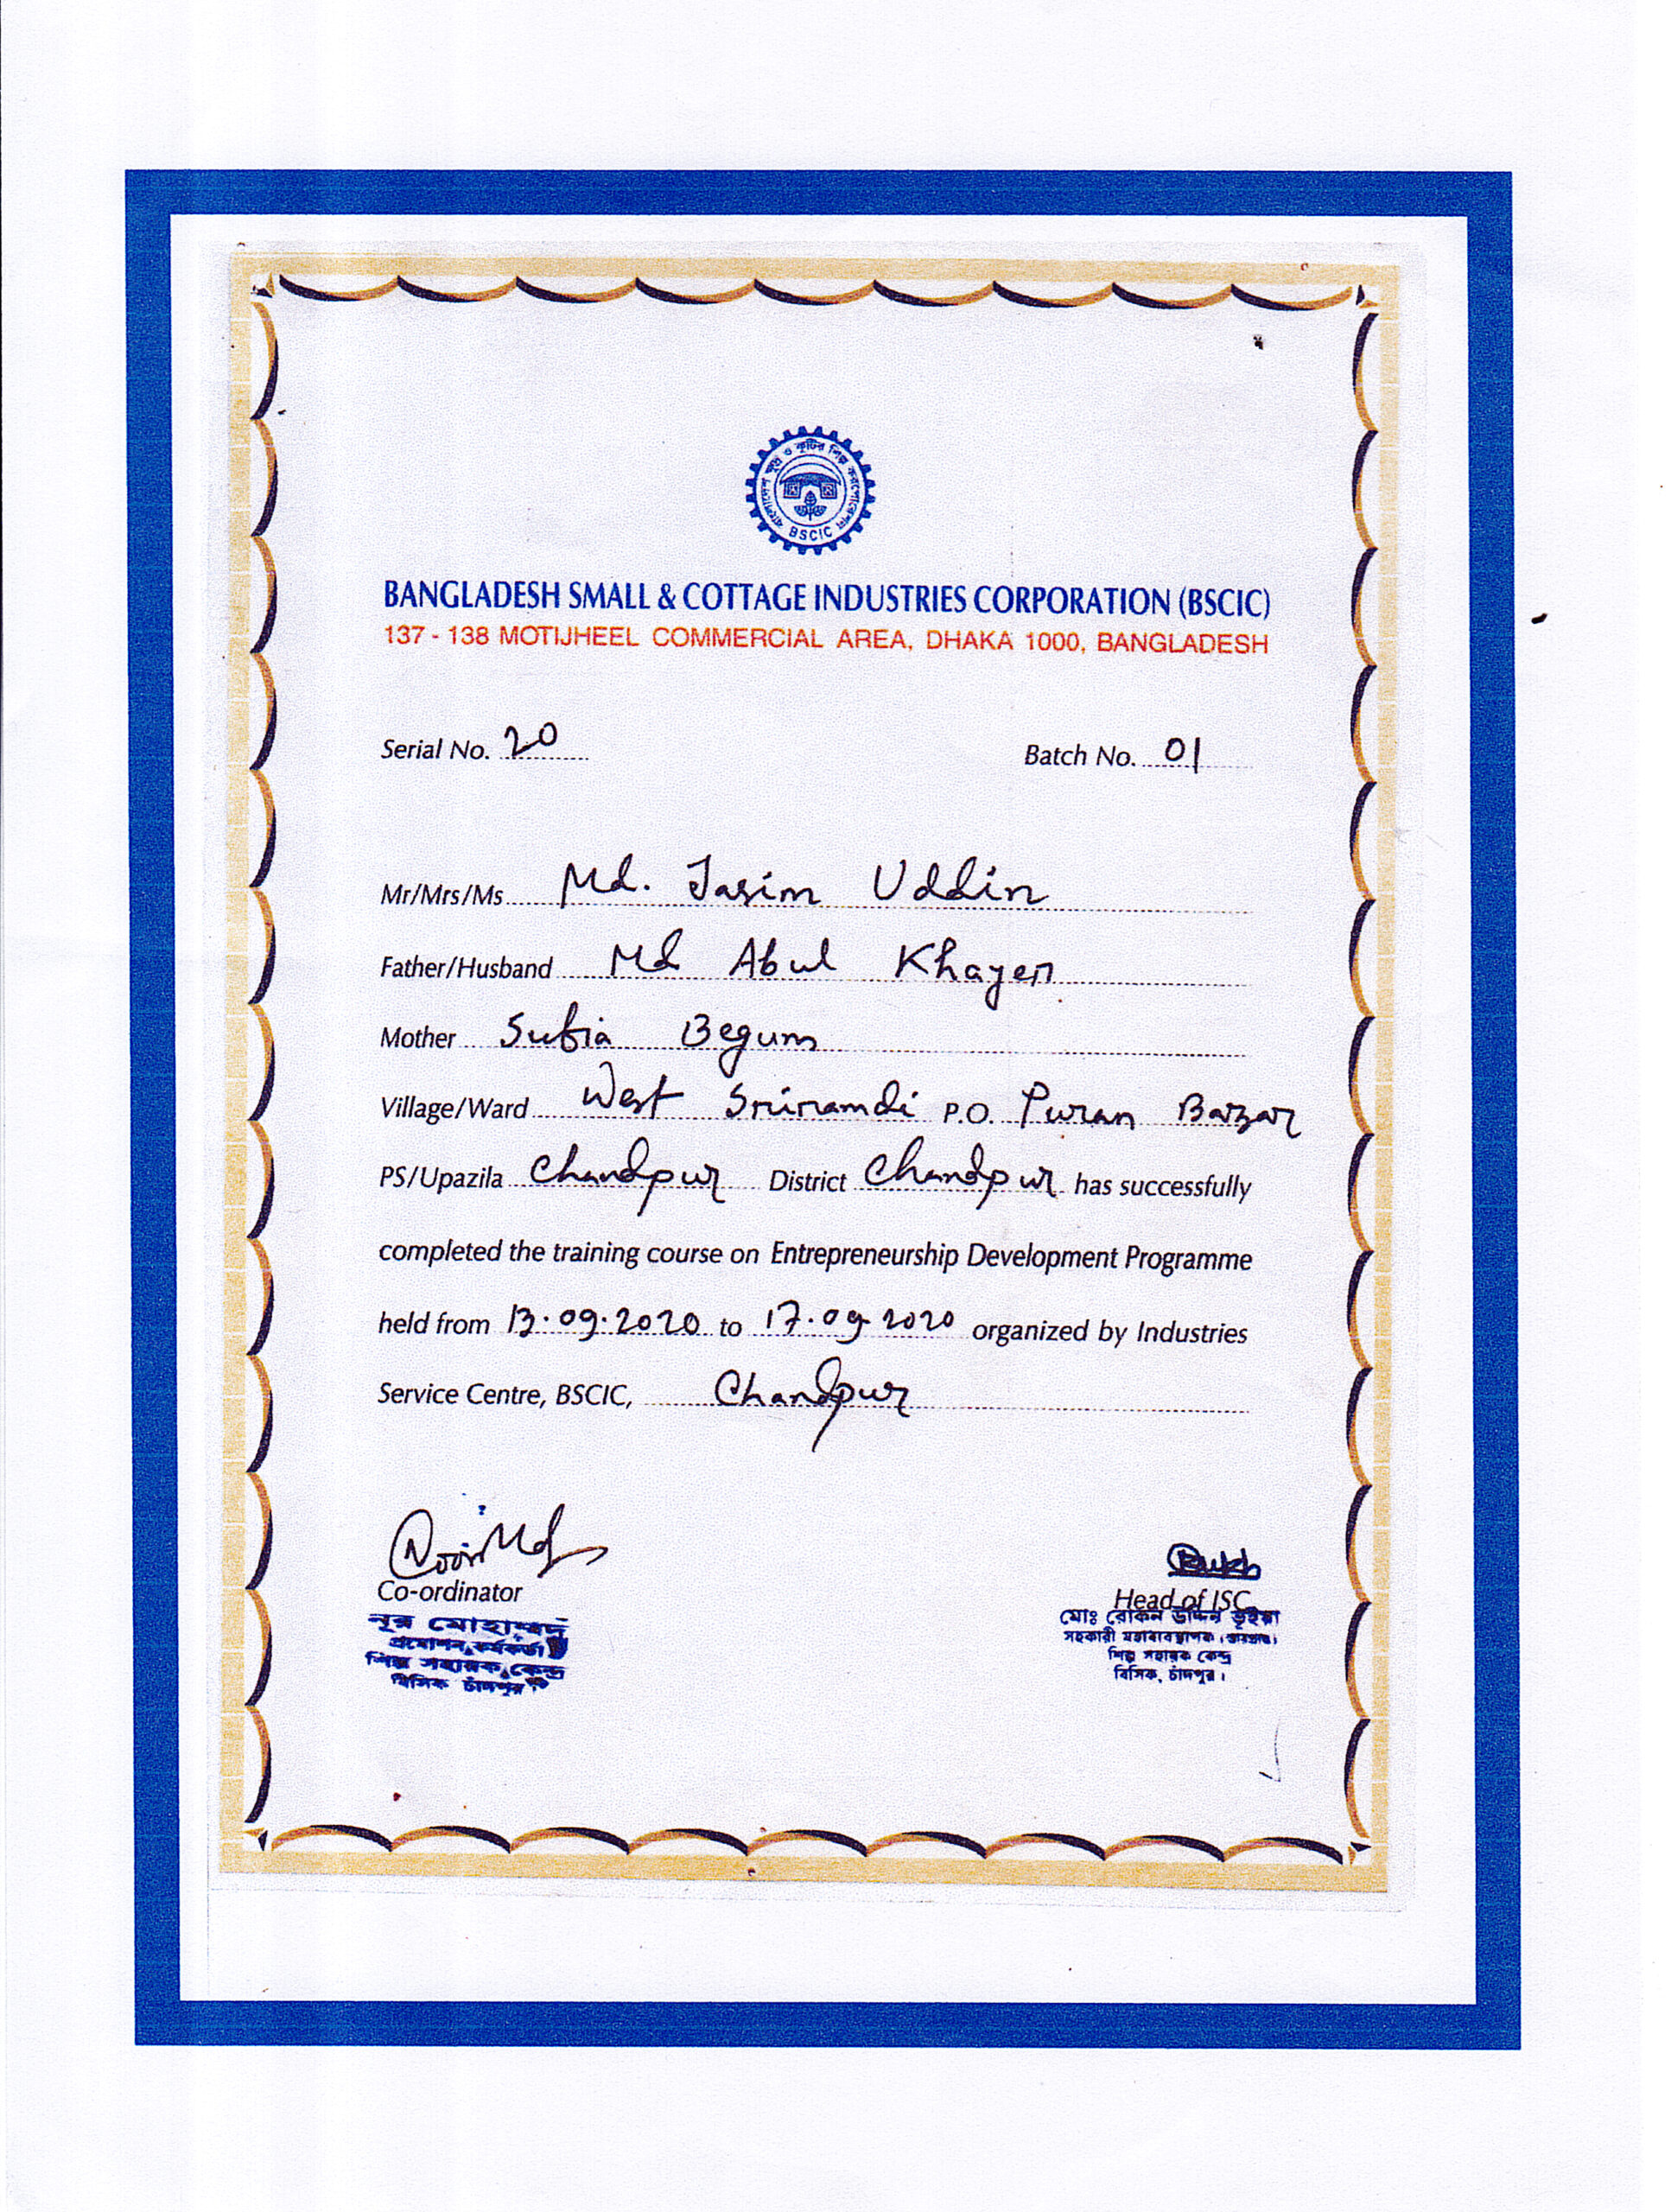 বাংলাদেশ ক্ষুদ্র ও কুটির শিল্প করপোরেশন
BSCIC
BANGLADESH SMALL & COTTAGE INDUSTRIES CORPORATION (BSCIC)
137 - 138 MOTIJHEEL COMMERCIAL AREA, DHAKA 1000, BANGLADESH
Serial No. 20 Batch No. 01
Mr/Mrs/Ms Md. Jasim Uddin
Father/Husband Md Abul Khayer
Mother Sufia Begum
Village/Ward West Sriramdi P.O. Puran Bazar
PS/Upazila Chandpur District Chandpur has successfully
completed the training course on Entrepreneurship Development Programme
held from 13.09.2020 to 17.09.2020 organized by Industries
Service Centre, BSCIC, Chandpur
Noor Md
Co-ordinator
নূর মোহাম্মদ
প্রমোশন কর্মকর্তা
শিল্প সহায়ক কেন্দ্র
বিসিক চাঁদপুর
Head of ISC
মোঃ রোকন উদ্দিন ভূইয়া
সহকারী মহাব্যবস্থাপক (ভারপ্রাঃ)
শিল্প সহায়ক কেন্দ্র
বিসিক, চাঁদপুর।